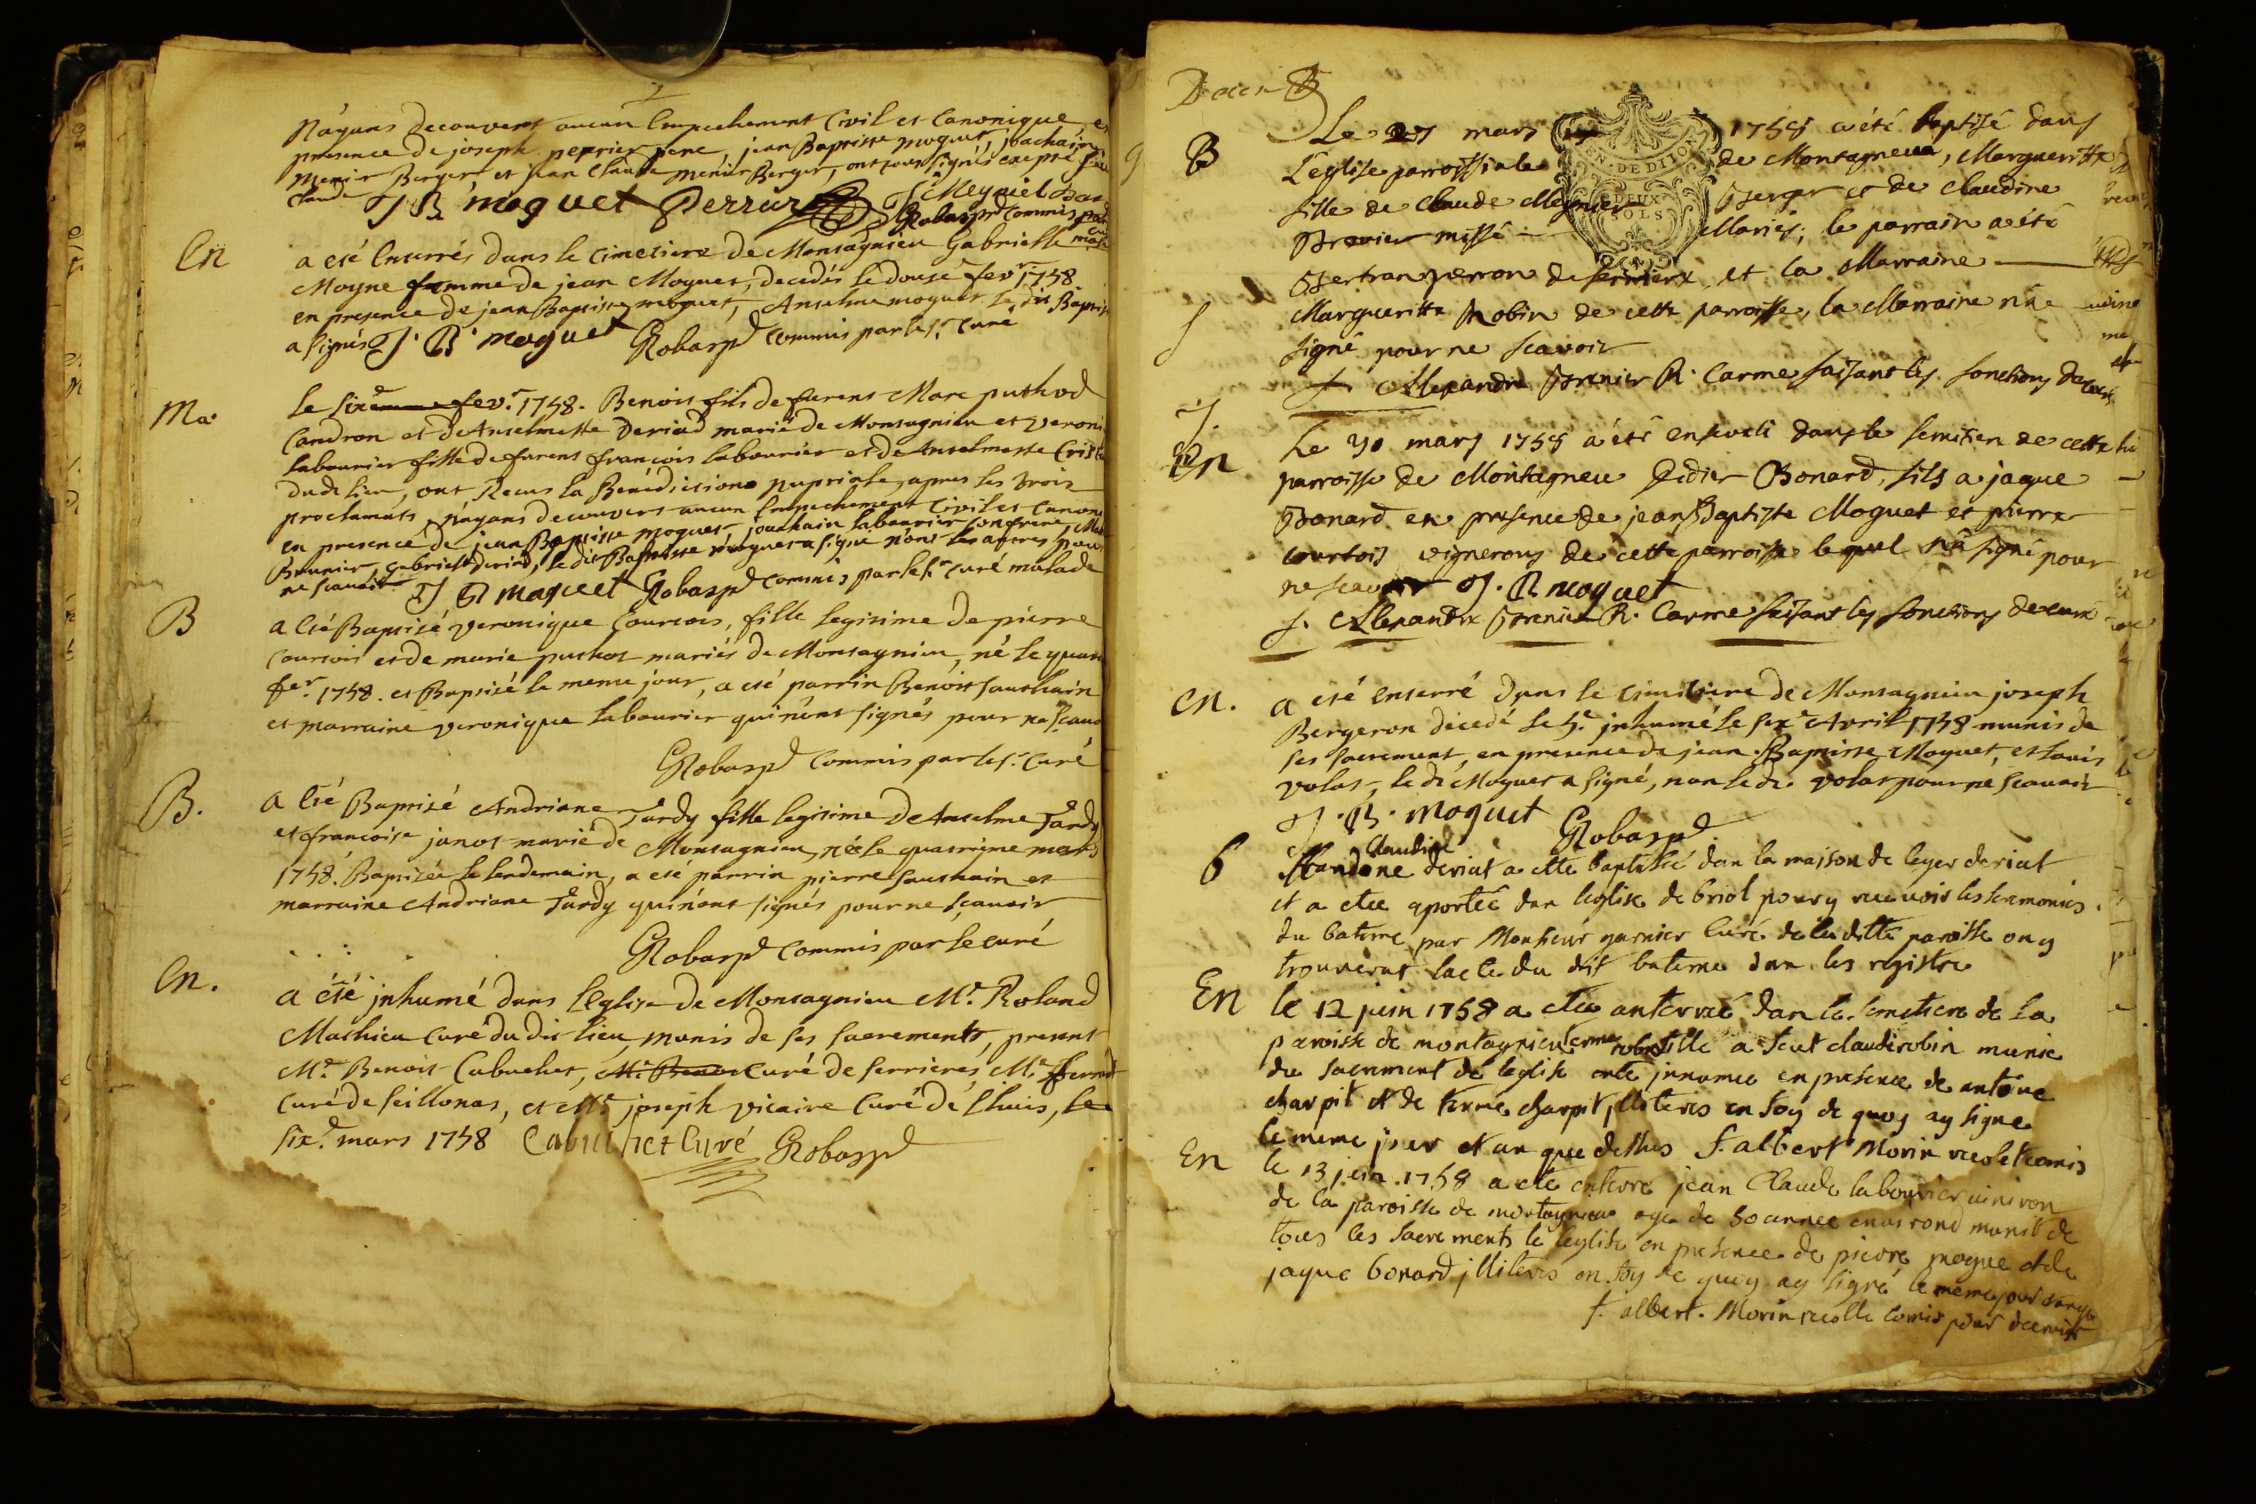 N'ayans decouvert aucun Empechement Civil et Canonique, e
presence de joseph perrier pere, jean Baptiste moquet, joachain
Menir Berger et jean Claude Menir Berger, ont tous signés excepté
Claude J B moquet Perrier J Meyniel
Robasp commis par
cu
mala
En
a eté Enterrés dans le Cimetiere de Montagnieu Gabrielle
Moyne femme de jean Moquet, decedés le douse fevr 1758
en presence de jean Baptiste moquet, Anselme moquet le dit Baptis
a signés J. B. moquet Robasp commis par le sr. Curé
Ma.
le sixe fevr. 1758. Benoit fils de furent Marc puthod
Candron et de Anselmette Deriad marié de Montagnieu et Veroni
labourier fille de furent françois labourier et de Anselmette Crist
dudt lieu, ont Recus la Benédiction nuptiale, apres les trois
proclamats n'ayans decouvers aucun Empechement Civil et Canoni
en presence de jean Baptiste moquet, joachain labourier son frere, Mar
Brunier, gabriel deriad, le dit Baptiste moquet a signe non les autres pour
ne scavoir J B moquet Robasp commis par le sr curé malade
B
a Eté Baptisé veronique Courtois, fille legitime de pierre
Courtois et de marie puthot mariés de Montagnieu, né le quatr
fer. 1758. et Baptisé le meme jour, a eté parrin Benoit sauthain
et marraine veronique labourier qui n'ont signés pour ne scavo
Robasp Commis par le sr. Curé
B.
a Eté Baptisé Andriane Tardy fille legitime de Anselme Tardy
et francoise janot marié de Montagnieu, née le quatrieme mars
1758. Baptisée le lendemain, a eté parrin pierre sauthain et
marraine Andriane Tardy qui n'ont signés pour ne scavoir
Robasp commis par le curé
En.
a été jnhumé dans l'Eglise de Montagnieu Mr. Roland
Mathieu curé du dit lieu, munis de ses sacrements, present
Mr. Benoit Cabuchet, Mr. Benoit curé de serrieres, Mr.
curé de seillonas, et Mr joseph vicaire Curé de Lhuis, le
sixe. mars 1758 Cabuchet Curé Robasp
EN. DE DIJON
DEUX
SOLS
B
Le 27 mars 1758 a été baptisé dans
L'eglise parroissiale de Montagneu, Margueritte
fille de Claude Meynier Berger et de Claudine
Brevier Mariés; le parrain a été
Bertran perron de serriere, et la Marraine
Margueritte Robin de cette parroisse, la Marraine n'a
signé pour ne scavoir
f. Allexandre Grenier R. Carme faisant les fonctions de curé
En
Le 30 mars 1758 a été enseveli dans le semitier de cette
parroisse de Montagneu Didier Bonard, fils a jaque
Bonard en presence de jean Baptiste Moquet et pierre
courtois vignerons de cette parroisse lequel n'a signé pour
ne scavoir J. B moquet
f. Allexandre Grenier R. Carme faisant les fonctions de curé
En.
a eté enterré dans le cimitiere de Montagnieu joseph
Bergeron décedé le 5e. jnhumé le sixe Avril 1758 munis de
ses sacrement, en presence de jean Baptiste Moquet, et louis
volat, le dt Moquet a signé, non le dt. volat pour ne scavoir
J. B. moquet Robasp
B
Claudine
deriat a ette baptisé dan la maison de leger deriat
et a etee aportée dan leglise de briol pour y recevoir les ceremonies
du bateme par Monsieur garnier Curé de la ditte paroisse on y
trouverat lacte du dit bateme dan les registre
En
le 12 juin 1758 a etee anterree dan le semetiere de la
paroisse de montagnieu robin fille a feut claude robin munie
du sacrement de leglise ete jnnumee en presence de antone
charpit et de charpit jlliteres en foy de quoy ay signe
le meme jour et an que dessus f. albert Morin recolet comis
En
le 13 juin 1758 a ete enterre jean Claude labourier vinieron
de la paroisse de montagneu age de 50 annee environd munit de
tous les sacrements de leglise en presence de pierre moque et de
jaque bonard jlliteres en foy de quoy ay signé le meme jour
f. albert. Morin recolle comis pour